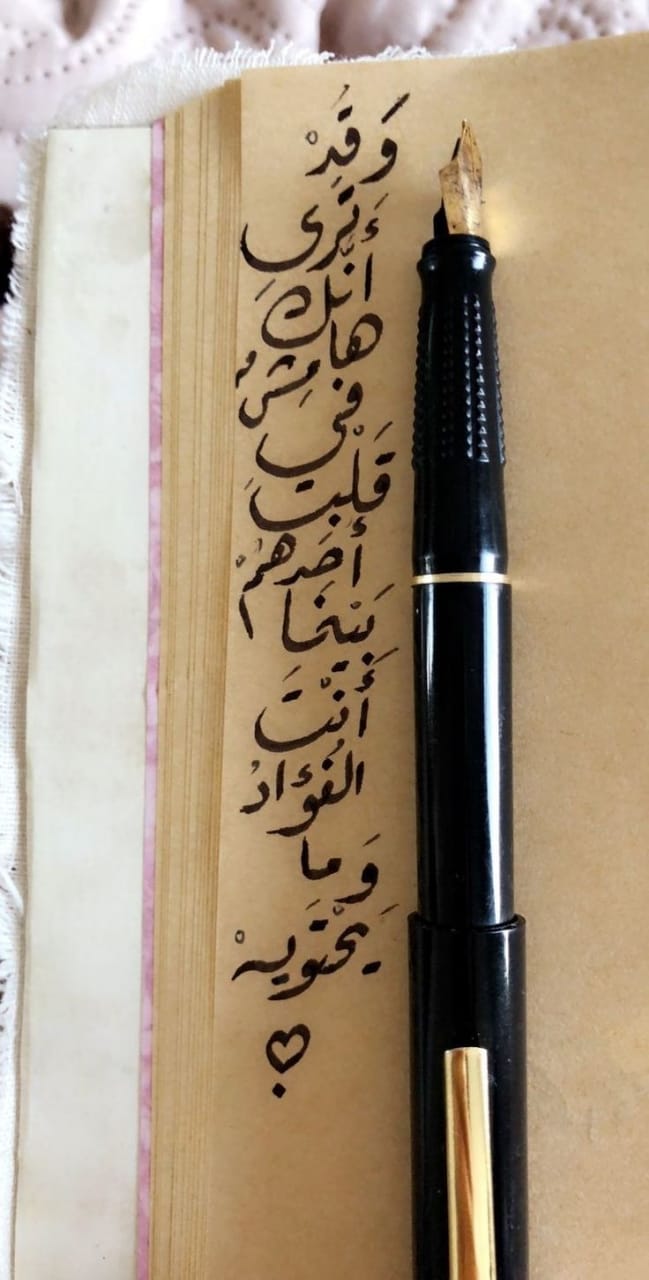 وَقَدْ
تَرى
أَنّك
هامِشٌ
في
قَلبِ
أحَدهُمْ
بَينَما
أَنْتَ
الفُؤادْ
وَما
يَحْتَويهْ